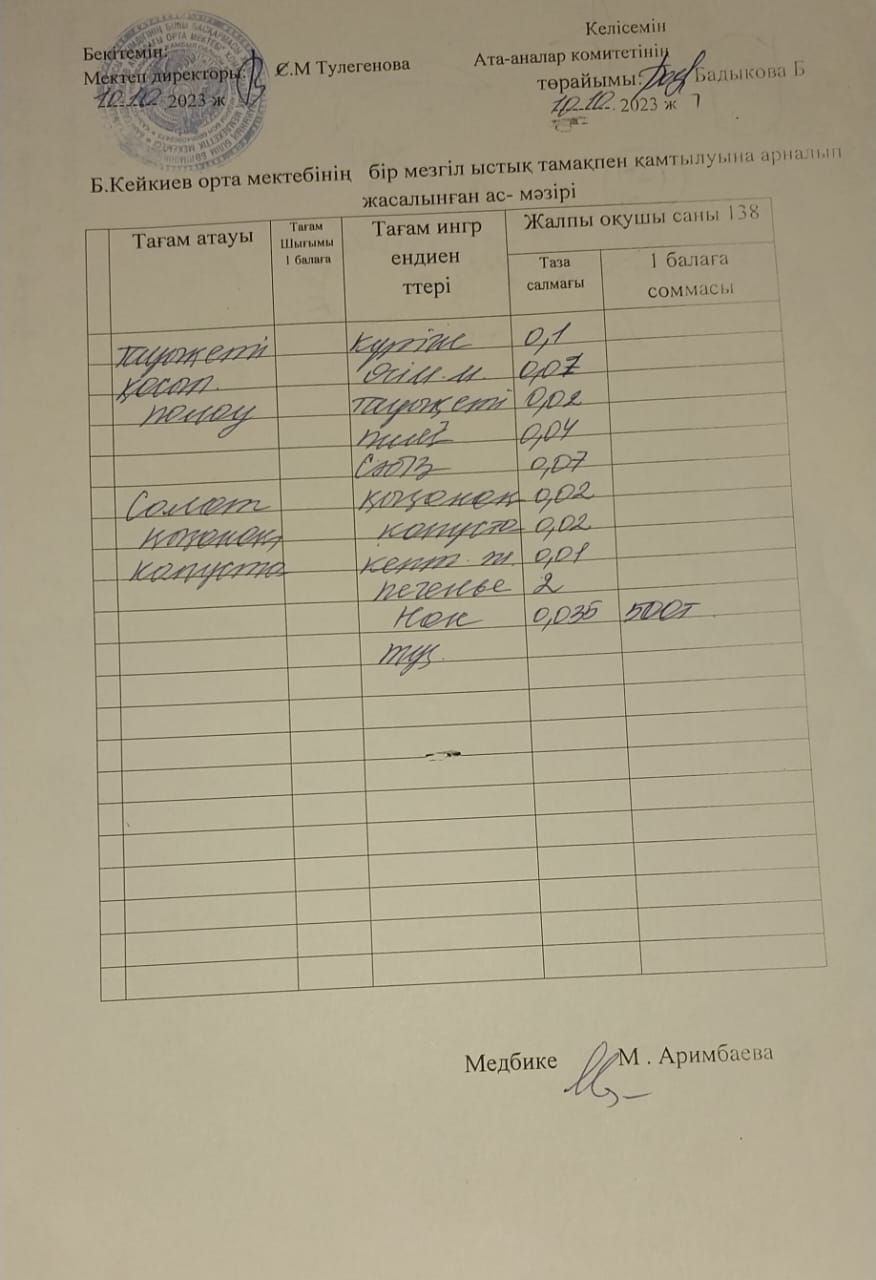 Бекітемін:
Мектеп директоры: С.М Тулегенова
10.10 2023 ж
Келісемін
Ата-аналар комитетінің
төрайымы: Бадыкова Б
10.10. 2023 ж
Б.Кейкиев орта мектебінің бір мезгіл ыстық тамақпен қамтылуына арналып
жасалынған ас- мәзірі
Тағам атауы
Тағам
Шығымы
1 балаға
Тағам ингр
ендиен
ттері
Жалпы оқушы саны 138
Таза
салмағы
1 балаға
соммасы
Тауық еті күріш 0,1
қосып өсім.м. 0,07
полау тауық еті 0,02
пияз 0,04
сәбіз 0,07
Салат қызанақ 0,02
қызанақ капуста 0,02
капуста кепт. ж. 0,01
печенье 2
Нан 0,035 500т
тұз.
Медбике М . Аримбаева